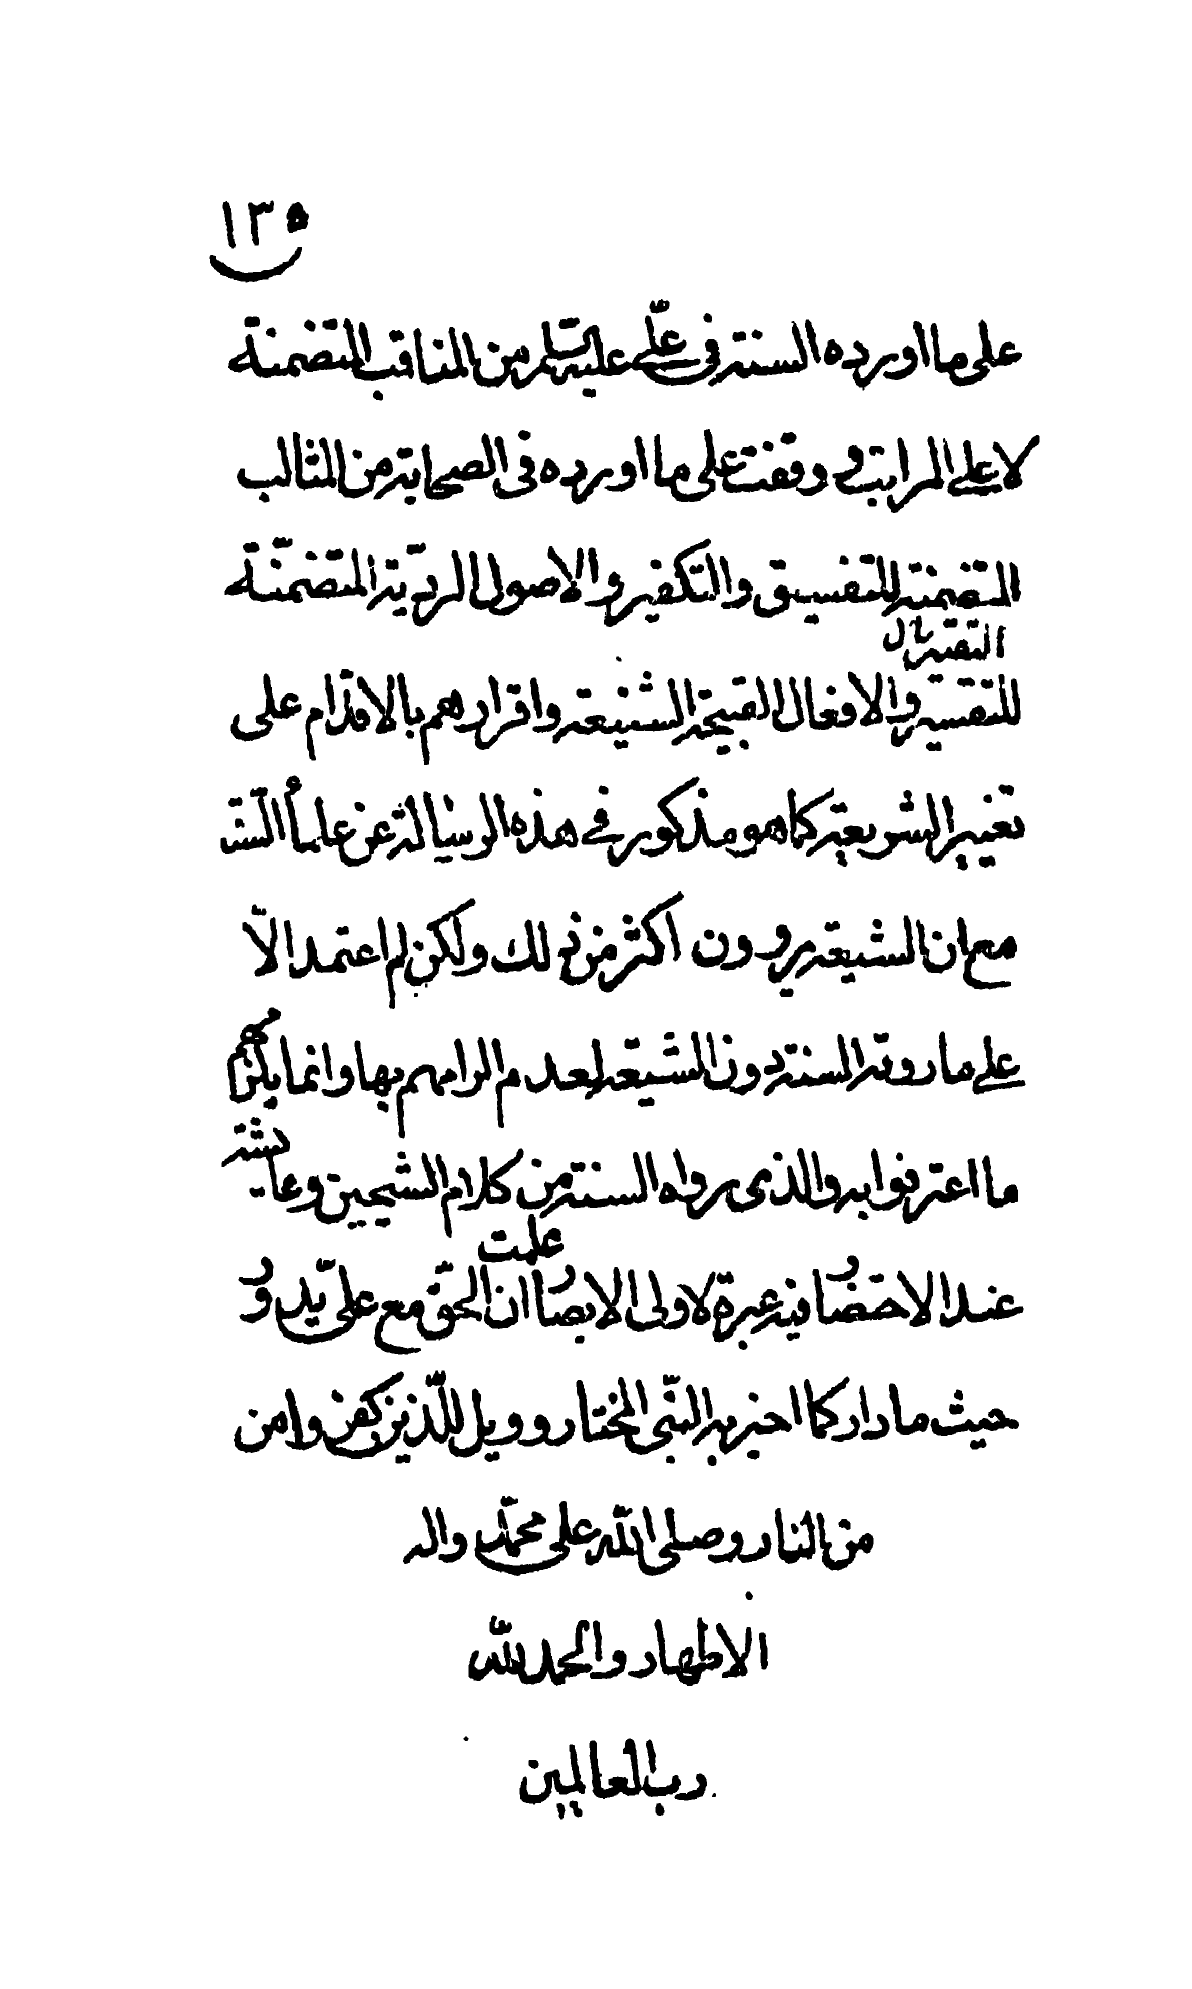 ١٣٥
على ما اورده السنة في علّي عليه السلم من المناقب المتضمنة
لاعلى المراتب و وقفت على ما اورده فى الصحابة من المثالب
المتضمنة للتفسيق والتكفير والاصول الرديّة المتضمّنة
للتقسية والافعال القبيحة الشنيعة واقرارهم بالاقدام على
تغيير الشريعة كما هو مذكور في هذه الرسالة عن علمأ السّنة
مع ان الشيعة يروون اكثر من ذلك ولكن لم اعتمد الاّ
على ما روته السنة دون الشيعة لعدم الزامهم بها وانما يلزمهم
ما اعترفوا به والذى رواه السنة من كلام الشيخين وعايشة
عند الاحتضار فيه عبرة لاولى الابصار علمت ان الحقّ مع على يدور
حيث ما دار كما اخبر به النبّى المختار و ويل للّذين كفروا من
من النار وصلى اللّه على محمّد واله
الاطهار والحمد للّه
رب العالمين